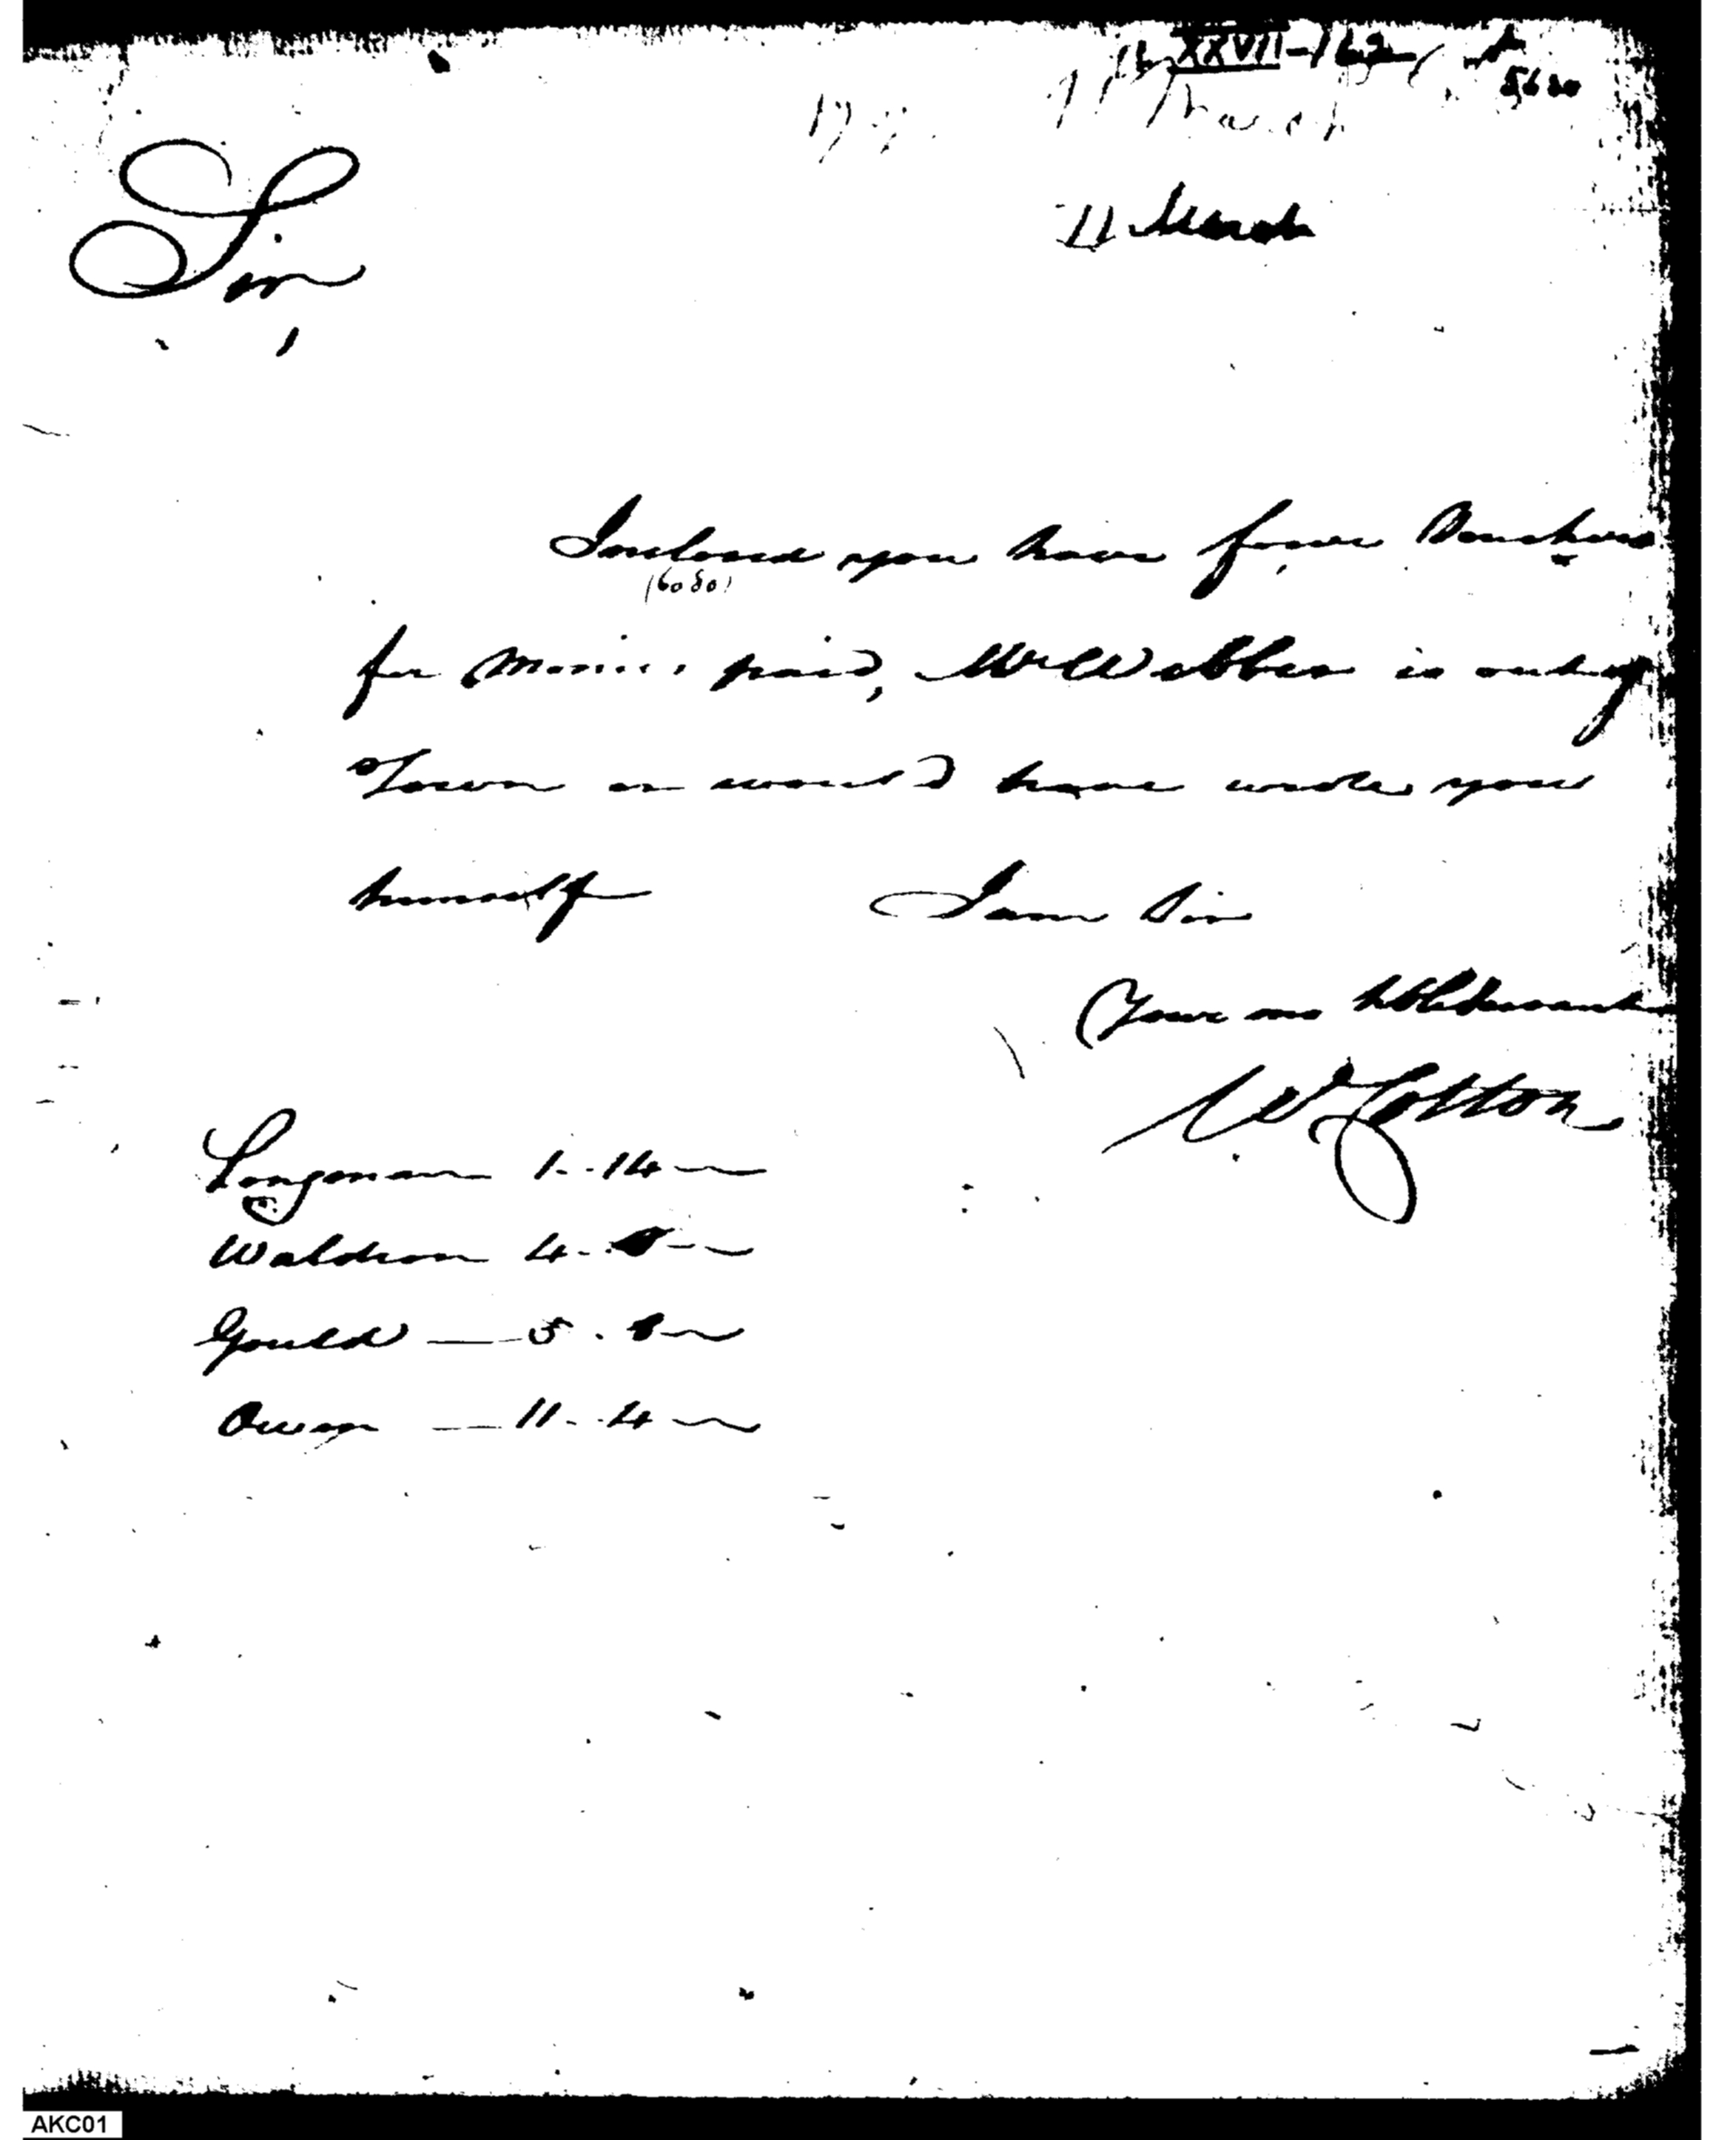 XXVII-162
5620
March
11 March
Sir
Inclosed you have four Vouchers
(6080)
for Monies paid, Mr Webber is out of
Town or would have wrote you
himself I am Sir
Your mo hble Servant
W Cotton
Longman 1--14
Waldron 4--
Gould — 5. 8
Owen — 11--4
AKC01